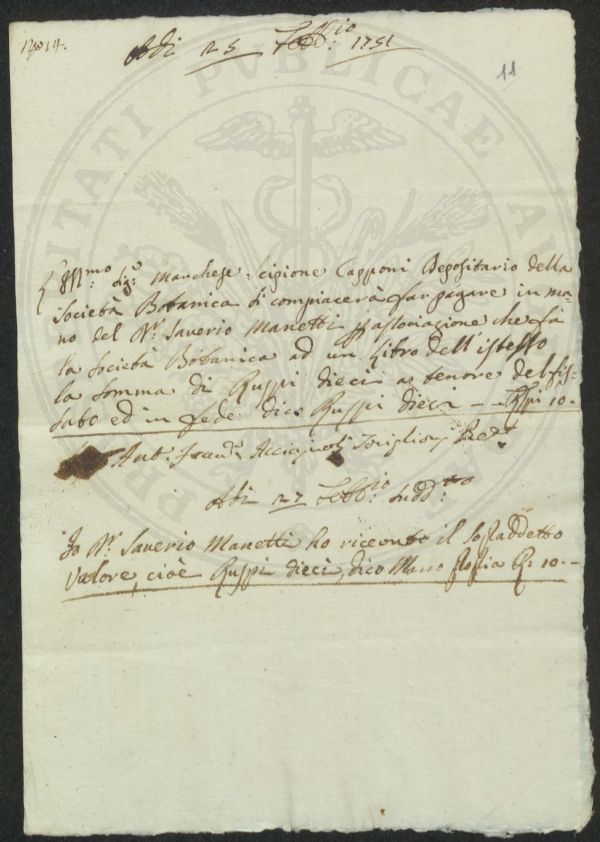 Adì 25 Febb:io 1751
11
Ill:mo Sig:e Marchese Scipione Capponi Depositario della
Società Botanica si compiacerà far pagare in ma-
no del Dr. Saverio Manetti p associazione che fà
la Società Botanica ad un Libro dell'istesso
la somma di Ruspi dieci a tenore del fis-
sato ed in fede dico Ruspi dieci - Ruspi 10.-
Adì 27 Febb:io Sudd:tto
Io Dr. Saverio Manetti ho ricevuto il sopraddetto
valore, cioè Ruspi dieci, dico Mano propria R. 10.-
PUBLICAE